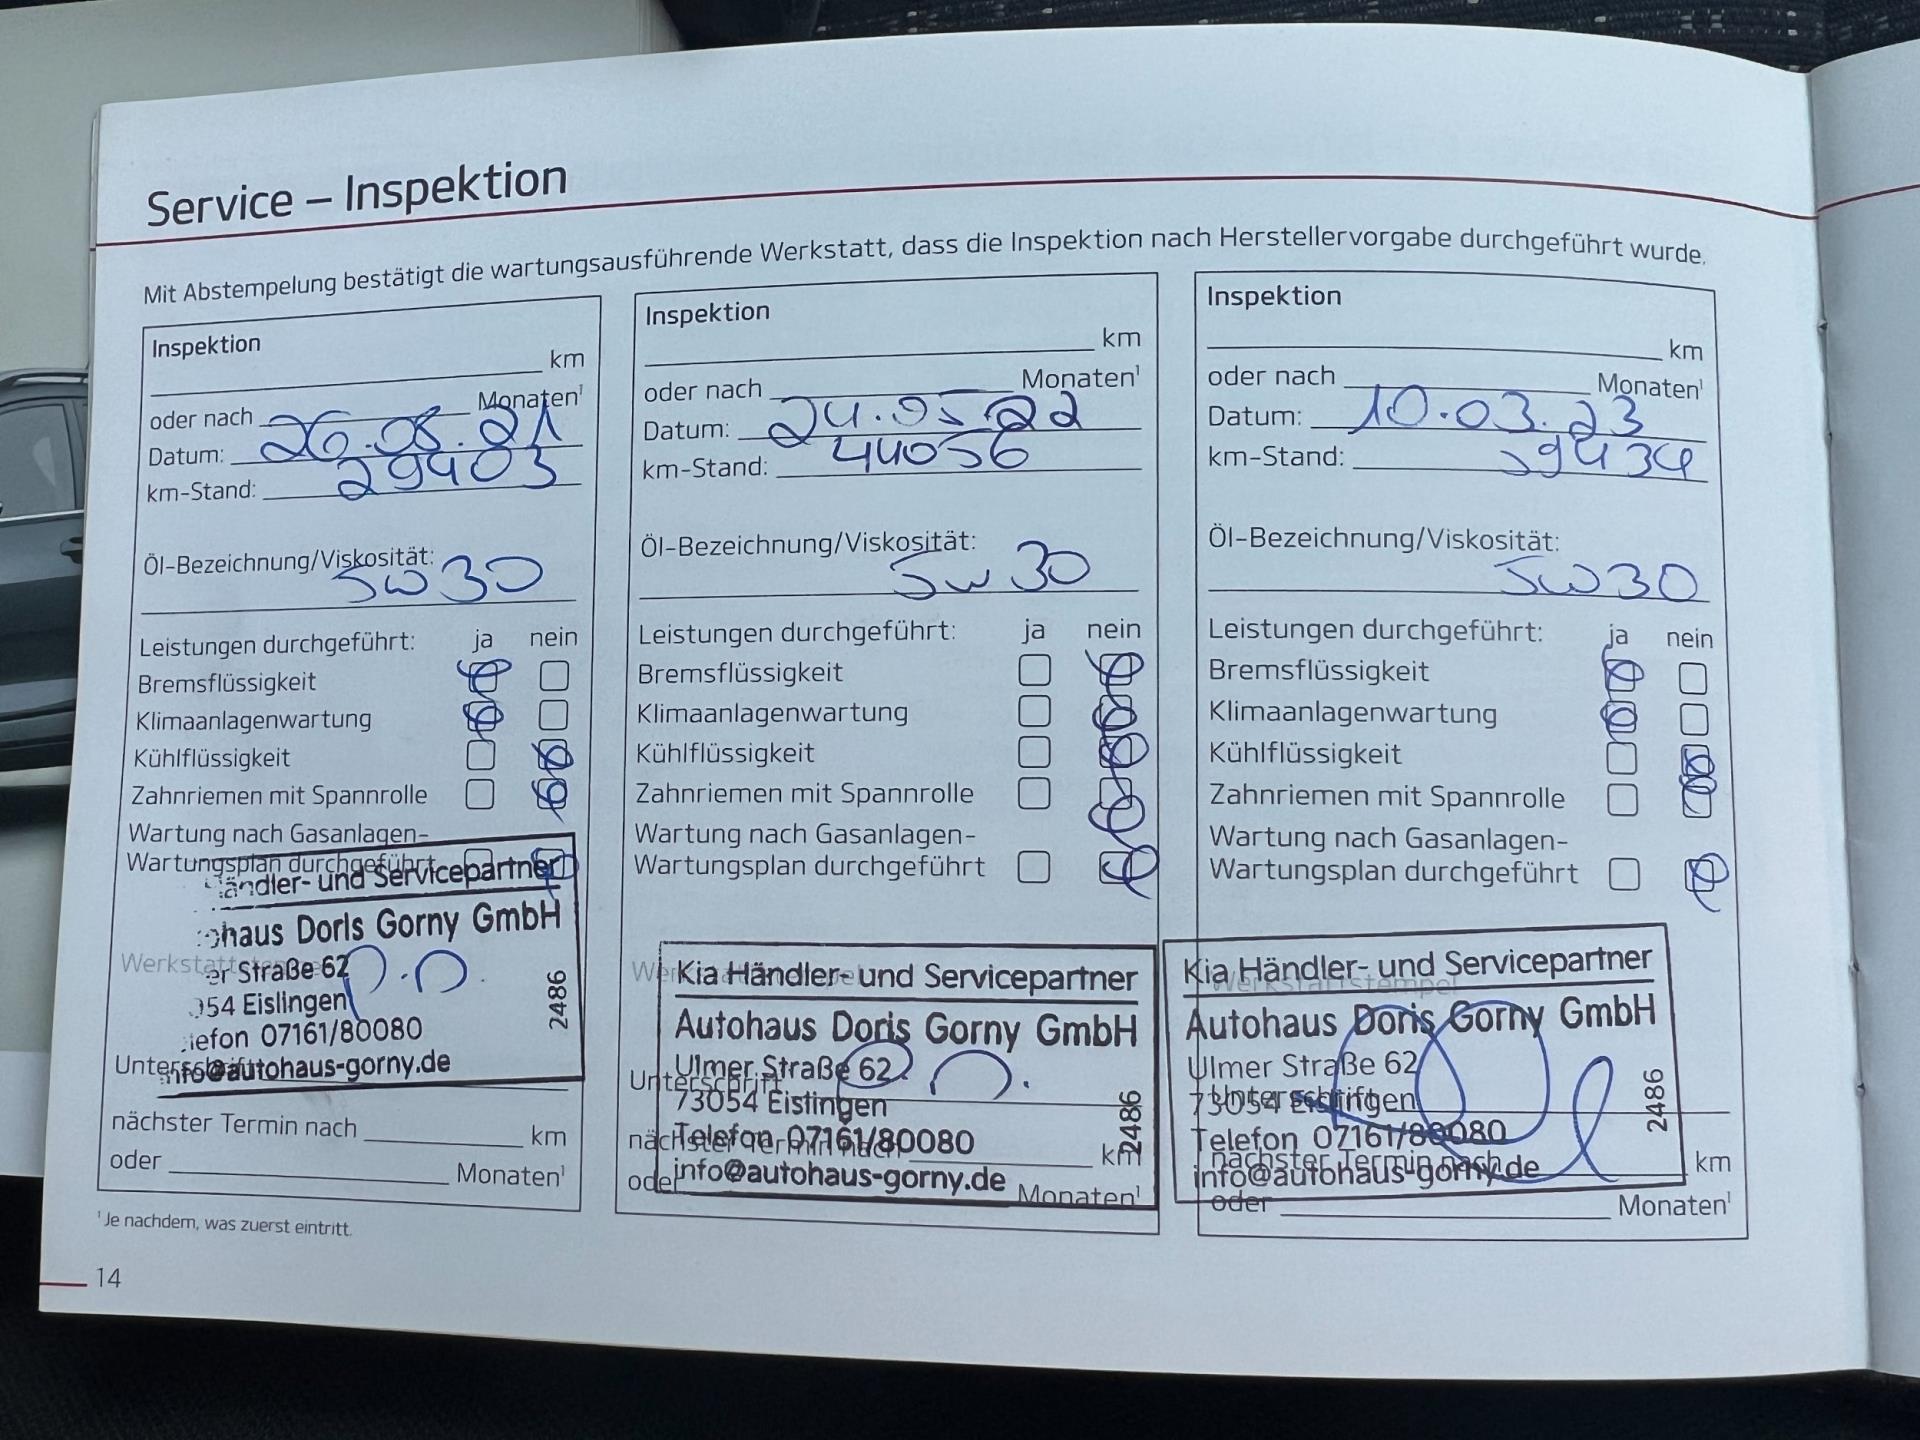 Service – Inspektion
Mit Abstempelung bestätigt die wartungsausführende Werkstatt, dass die Inspektion nach Herstellervorgabe durchgeführt wurde.
Inspektion
km
oder nach Monaten¹
Datum: 26.05.21
km-Stand: 29403
Öl-Bezeichnung/Viskosität:
5W30
Leistungen durchgeführt: ja nein
Bremsflüssigkeit
Klimaanlagenwartung
Kühlflüssigkeit
Zahnriemen mit Spannrolle
Wartung nach Gasanlagen-
Wartungsplan durchgeführt
ändler- und Servicepartner
ohaus Doris Gorny GmbH
Werkstattstempel
er Straße 62
054 Eislingen
2486
lefon 07161/80080
Unterschrift
info@autohaus-gorny.de
nächster Termin nach km
oder Monaten¹
Inspektion
km
oder nach Monaten¹
Datum: 24.05.22
km-Stand: 44056
Öl-Bezeichnung/Viskosität:
5W30
Leistungen durchgeführt: ja nein
Bremsflüssigkeit
Klimaanlagenwartung
Kühlflüssigkeit
Zahnriemen mit Spannrolle
Wartung nach Gasanlagen-
Wartungsplan durchgeführt
Werkstattstempel
Kia Händler- und Servicepartner
Autohaus Doris Gorny GmbH
Ulmer Straße 62
Unterschrift
73054 Eislingen
2486
Telefon 07161/80080
nächster Termin nach km
info@autohaus-gorny.de
oder Monaten¹
Inspektion
km
oder nach Monaten¹
Datum: 10.03.23
km-Stand: 59434
Öl-Bezeichnung/Viskosität:
5W30
Leistungen durchgeführt: ja nein
Bremsflüssigkeit
Klimaanlagenwartung
Kühlflüssigkeit
Zahnriemen mit Spannrolle
Wartung nach Gasanlagen-
Wartungsplan durchgeführt
Kia Händler- und Servicepartner
Werkstattstempel
Autohaus Doris Gorny GmbH
Ulmer Straße 62
Unterschrift
73054 Eislingen
2486
Telefon 07161/80080
nächster Termin nach km
info@autohaus-gorny.de
oder Monaten¹
¹ Je nachdem, was zuerst eintritt.
14